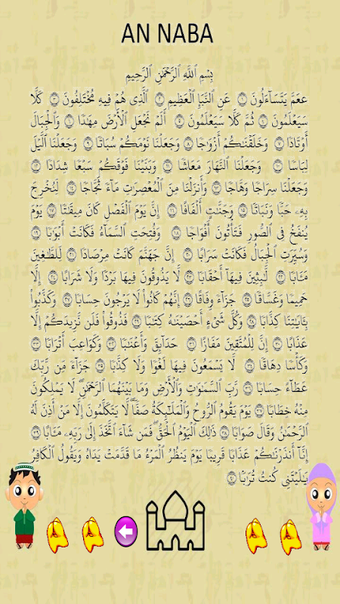 AN NABA
بِسْمِ ٱللَّهِ ٱلرَّحْمَٰنِ ٱلرَّحِيمِ
عَمَّ يَتَسَآءَلُونَ ١ عَنِ ٱلنَّبَإِ ٱلْعَظِيمِ ٢ ٱلَّذِى هُمْ فِيهِ مُخْتَلِفُونَ ٣ كَلَّا
سَيَعْلَمُونَ ٤ ثُمَّ كَلَّا سَيَعْلَمُونَ ٥ أَلَمْ نَجْعَلِ ٱلْأَرْضَ مِهَٰدًا ٦ وَٱلْجِبَالَ
أَوْتَادًا ٧ وَخَلَقْنَٰكُمْ أَزْوَٰجًا ٨ وَجَعَلْنَا نَوْمَكُمْ سُبَاتًا ٩ وَجَعَلْنَا ٱلَّيْلَ
لِبَاسًا ١٠ وَجَعَلْنَا ٱلنَّهَارَ مَعَاشًا ١١ وَبَنَيْنَا فَوْقَكُمْ سَبْعًا شِدَادًا ١٢
وَجَعَلْنَا سِرَاجًا وَهَّاجًا ١٣ وَأَنزَلْنَا مِنَ ٱلْمُعْصِرَٰتِ مَآءً ثَجَّاجًا ١٤ لِّنُخْرِجَ
بِهِۦ حَبًّا وَنَبَاتًا ١٥ وَجَنَّٰتٍ أَلْفَافًا ١٦ إِنَّ يَوْمَ ٱلْفَصْلِ كَانَ مِيقَٰتًا ١٧ يَوْمَ
يُنفَخُ فِى ٱلصُّورِ فَتَأْتُونَ أَفْوَاجًا ١٨ وَفُتِحَتِ ٱلسَّمَآءُ فَكَانَتْ أَبْوَٰبًا ١٩
وَسُيِّرَتِ ٱلْجِبَالُ فَكَانَتْ سَرَابًا ٢٠ إِنَّ جَهَنَّمَ كَانَتْ مِرْصَادًا ٢١ لِّلطَّٰغِينَ
مَـَٔابًا ٢٢ لَّٰبِثِينَ فِيهَآ أَحْقَابًا ٢٣ لَّا يَذُوقُونَ فِيهَا بَرْدًا وَلَا شَرَابًا ٢٤ إِلَّا
حَمِيمًا وَغَسَّاقًا ٢٥ جَزَآءً وِفَاقًا ٢٦ إِنَّهُمْ كَانُوا۟ لَا يَرْجُونَ حِسَابًا ٢٧ وَكَذَّبُوا۟
بِـَٔايَٰتِنَا كِذَّابًا ٢٨ وَكُلَّ شَىْءٍ أَحْصَيْنَٰهُ كِتَٰبًا ٢٩ فَذُوقُوا۟ فَلَن نَّزِيدَكُمْ إِلَّا
عَذَابًا ٣٠ إِنَّ لِلْمُتَّقِينَ مَفَازًا ٣١ حَدَآئِقَ وَأَعْنَٰبًا ٣٢ وَكَوَاعِبَ أَتْرَابًا ٣٣
وَكَأْسًا دِهَاقًا ٣٤ لَّا يَسْمَعُونَ فِيهَا لَغْوًا وَلَا كِذَّٰبًا ٣٥ جَزَآءً مِّن رَّبِّكَ
عَطَآءً حِسَابًا ٣٦ رَّبِّ ٱلسَّمَٰوَٰتِ وَٱلْأَرْضِ وَمَا بَيْنَهُمَا ٱلرَّحْمَٰنِ لَا يَمْلِكُونَ
مِنْهُ خِطَابًا ٣٧ يَوْمَ يَقُومُ ٱلرُّوحُ وَٱلْمَلَٰٓئِكَةُ صَفًّا لَّا يَتَكَلَّمُونَ إِلَّا مَنْ أَذِنَ لَهُ
ٱلرَّحْمَٰنُ وَقَالَ صَوَابًا ٣٨ ذَٰلِكَ ٱلْيَوْمُ ٱلْحَقُّ فَمَن شَآءَ ٱتَّخَذَ إِلَىٰ رَبِّهِۦ مَـَٔابًا ٣٩
إِنَّآ أَنذَرْنَٰكُمْ عَذَابًا قَرِيبًا يَوْمَ يَنظُرُ ٱلْمَرْءُ مَا قَدَّمَتْ يَدَاهُ وَيَقُولُ ٱلْكَافِرُ
يَٰلَيْتَنِى كُنتُ تُرَٰبًا ٤٠